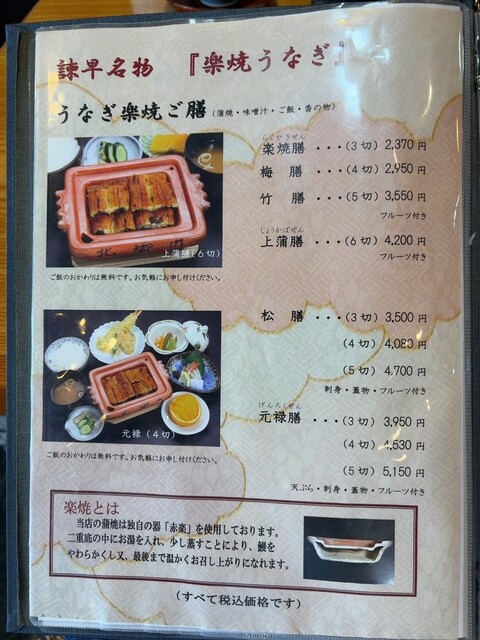 諫早名物 『楽焼うなぎ』
うなぎ楽焼ご膳 (蒲焼・味噌汁・ご飯・香の物)
らくやきぜん
楽焼膳 ・・・(3切) 2,370 円
梅膳 ・・・(4切) 2,950 円
竹膳 ・・・(5切) 3,550 円
フルーツ付き
じょうかばぜん
上蒲膳 ・・・(6切) 4,200 円
フルーツ付き
上蒲膳(6切)
ご飯のおかわりは無料です。お気軽にお申し付けください。
松膳 ・・・(3切) 3,500 円
(4切) 4,080 円
(5切) 4,700 円
刺身・蓋物・フルーツ付き
げんろくぜん
元禄膳 ・・・(3切) 3,950 円
(4切) 4,530 円
(5切) 5,150 円
天ぷら・刺身・蓋物・フルーツ付き
元禄(4切)
ご飯のおかわりは無料です。お気軽にお申し付けください。
楽焼とは
当店の蒲焼は独自の器「赤楽」を使用しております。
二重底の中にお湯を入れ、少し蒸すことにより、鰻を
やわらかくし又、最後まで温かくお召し上がりになれます。
(すべて税込価格です)